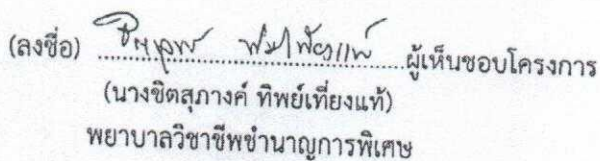 (ลงชื่อ) ........................................ ผู้เห็นชอบโครงการ
(นางชิตสุภางค์ ทิพย์เที่ยงแท้)
พยาบาลวิชาชีพชำนาญการพิเศษ